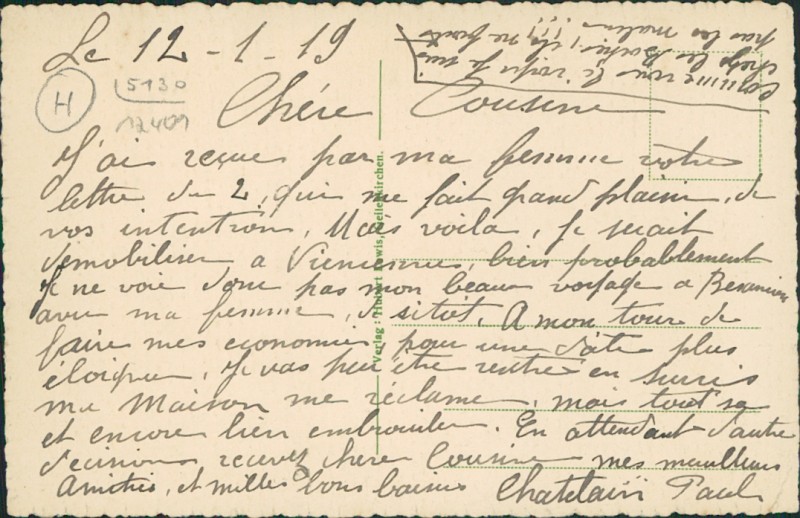 Le 12-1-19
H
15130
12409
Chére Cousine
J'ai reçue par ma femme votre
lettre du 2, qui me fait grand plaisir, de
vos intention, Mais voila, je serait
demobiliser a Vincennes, bien probablement
Je ne voie donc pas mon beau voyage a Besancon
avec ma femme, si sitôt. A mon tour de
faire mes economies pour une date plus
éloignee, Je vas peu être rentré en sursis
ma Maison me réclame, mais tout sa
et encore bien embrouiller. En attendant d'autre
decisions recevez chere Cousine mes meuilleurs
Amitiés, et milles bons baisers Chatelain Paul
comme vous le voyez je suis
chez les Boches, ils ne sont
pas les malins
Verlag : Lewis,